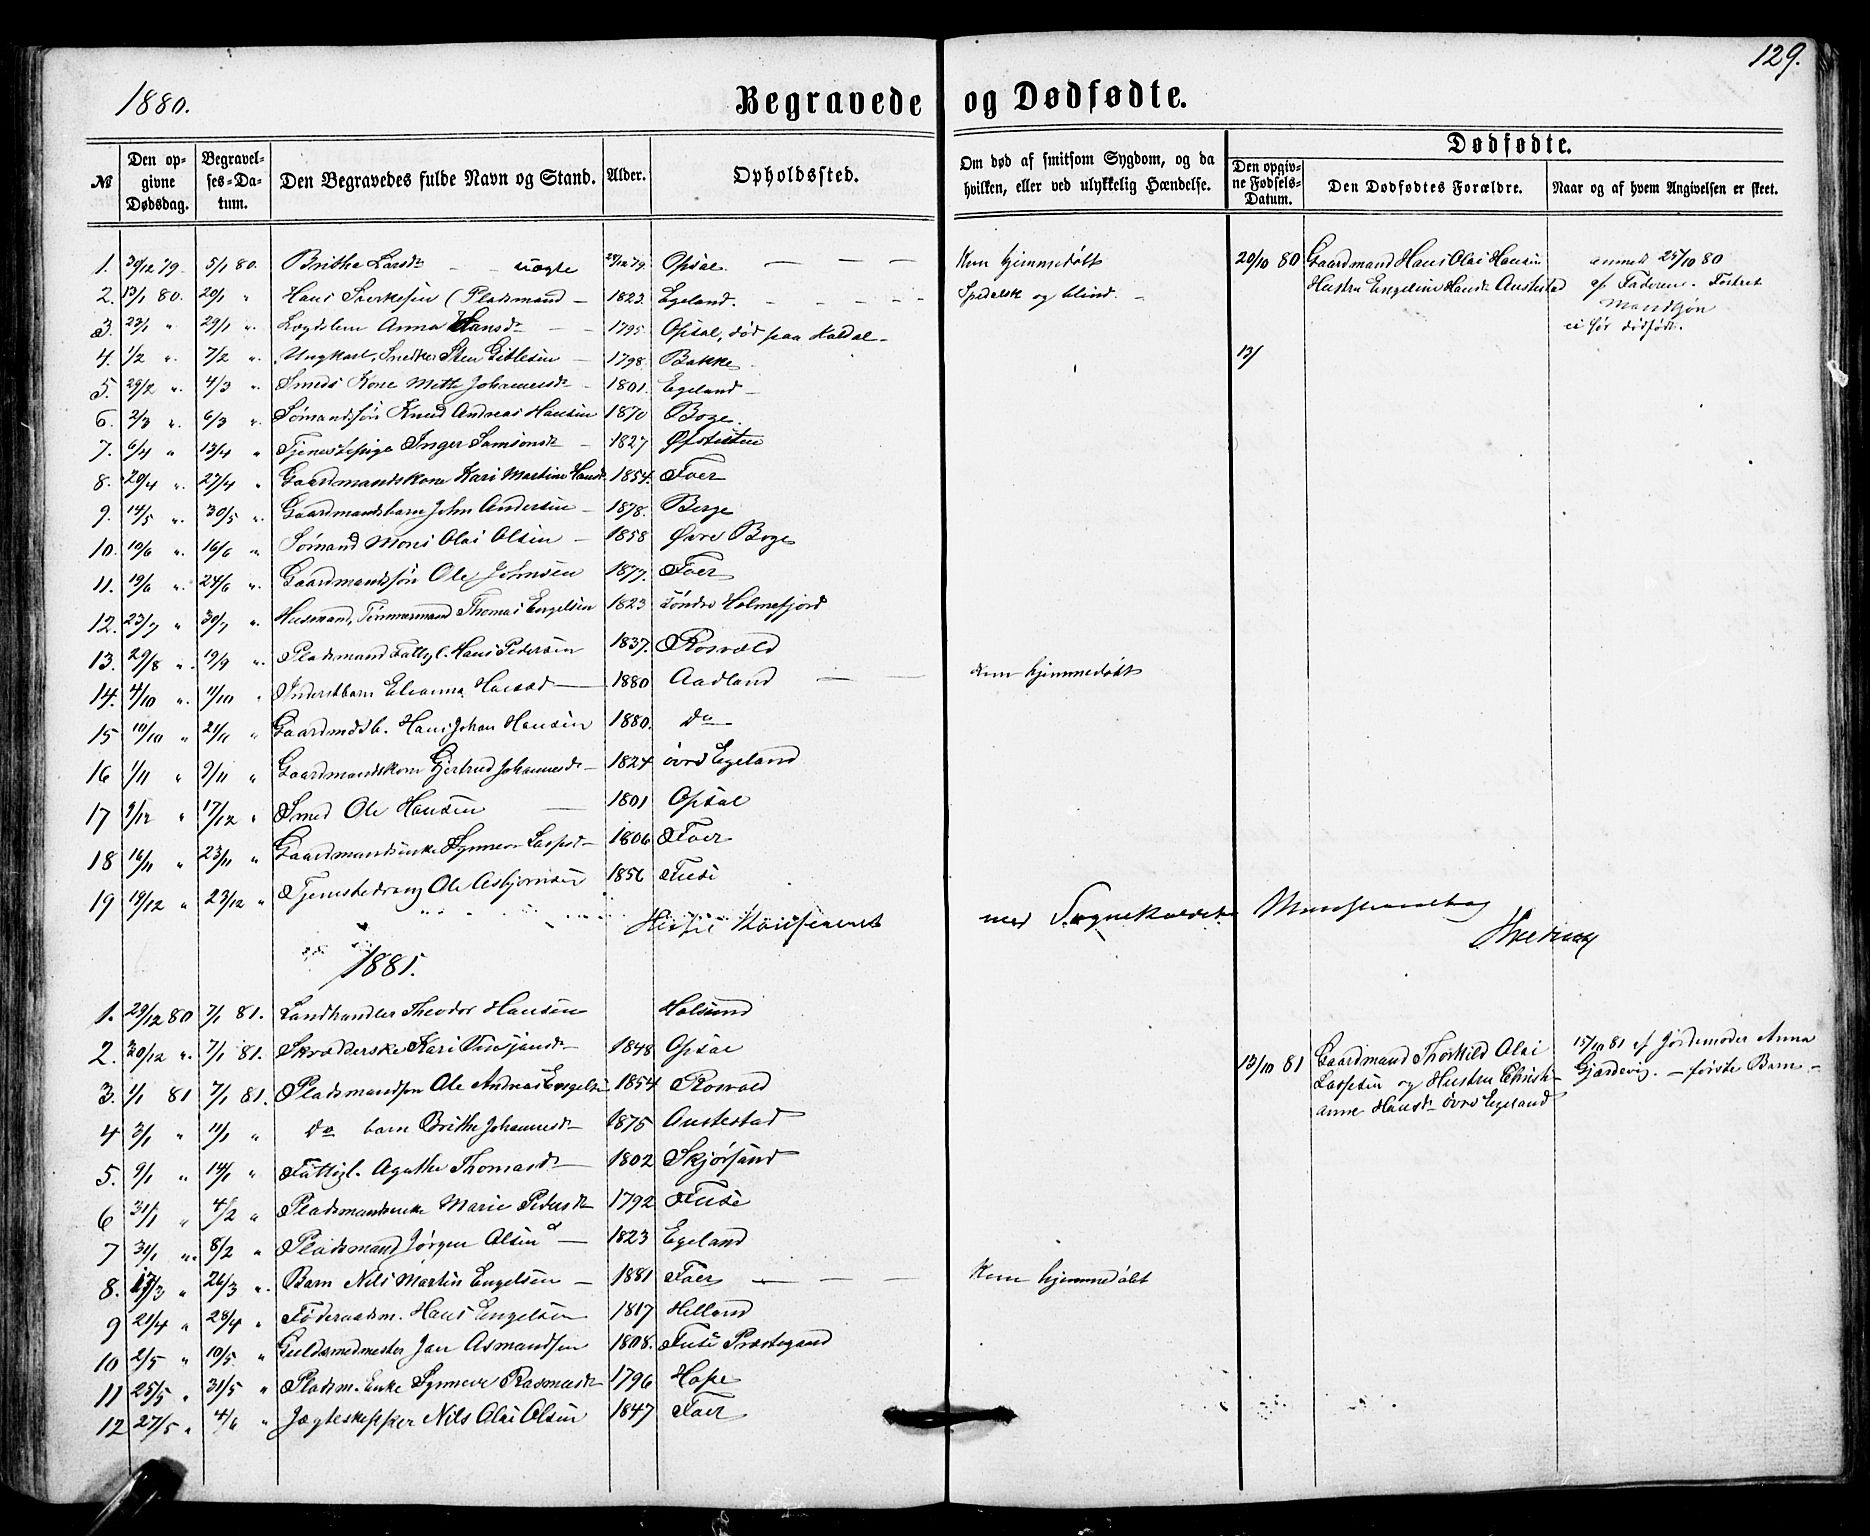 129.
1880.
Begravede og Dødfødte.
Dødfødte.
№
Den opgivne Dødsdag.
Begravelses-Datum.
Den Begravedes fulde Navn og Stand.
Alder.
Opholdssted.
Om død af smitsom Sygdom, og da hvilken, eller ved ulykkelig Hændelse.
Den opgivne Fødsels-Datum.
Den Dødfødtes Forældre.
Naar og af hvem Angivelsen er skeet.
1. 30/12 79. 5/1 80. Britha Larsdr uægte 29/12 79. Opsal. Kun hjemmedøbt
2. 13/1 80. 20/1 " Hans Sverkesen (Pladsmand 1823. Egeland. Spedalsk og blind.
3. 23/1 " 29/1 " Lægdslem Anna Hansdr 1795. Opsal, død paa Kaldal
4. 1/2 " 7/2 " Ungkarl, Snedker Sten Gitlesen 1798. Bakke
5. 29/2 " 4/3 " Smeds Kone Mette Johannesdr 1801. Egeland
6. 2/3 " 6/3 " Sømandssøn Knud Andreas Hansen 1870 Boge.
7. 6/4 " 13/4 " Tjenestepige Inger Samsonsdr 1827
8. 20/4 " 27/4 " Gaardmandskone Kari Martine Hansdr 1854. Foer
9. 14/5 " 30/5 " Gaardmandsbarn John Andersen 1878. Berge
10. 10/6 " 16/6 " Sømand Mons Olai Olsen 1858 Øvre Boge
11. 19/6 " 24/6 " Gaardmandssøn Ole Johnsen 1877. Foer
12. 23/7 " 30/7 " Husmand, Tømmermand Thomas Engelsen 1823 Søndre Holmefjord
13. 29/8 " 19/9 " Pladsmand Fattigl. Hans Pedersen 1837. Rosvold
14. 4/10 " 11/10 " Inderstbarn Elianna 1880 Aadland Kun hjemmedøbt
15 10/10 " 21/11 " Gaardmdsb. Hans Johan Hansen 1880. Do
16 1/11 " 9/11 " Gaardmandskone Gjertrud Johannesdr 1824 øvre Egeland
17 9/12 " 17/12 " Smed Ole Hansen 1801 Opsal
18 16/11 " 23/11 " Gaardmandsenke Synneve Lassesdr 1806 Foer
19 18/12 " 23/12 " Tjenestedreng Ole Asbjørnsen 1856 Fuse
20/10 80 Gaardmand Hans Olai Hansen
Hustru Engeline Hansdr Austestad
anmeldt 25/10 80
af Faderen. Fostret
Mandkjøn
ei før dødfødt.
13/
med Sognekaldet
1881.
1. 29/12 80 7/1 81. Landhandler Theodor Hansen Holsund
2. 30/12 " 7/1 81. Skrædderske Kari 1848 Opsal
3. 1/1 81 7/1 81. Pladsmandssøn Ole Andreas Engelsen 1854 Rosvold
4 3/1 " 11/1 " Do barn Brithe Johannesdr 1875 Austestad
5. 9/1 " 14/1 " Fattigl. Agathe Thomasdr 1802 Skjørsand
6 31/1 " 4/2 " Pladsmandsenke Marie Pedersdr 1792 Fuse
7 31/1 " 8/2 " Pladsmand Jørgen Olsen 1823 Egeland
8. 17/3 " 26/3 " Barn Nils Martin Engelsen 1881 Foer Kun hjemmedøbt
9 21/4 " 28/4 " Føderaadsm. Hans Engelsen 1817 Helland
10 2/5 " 10/5 " Guldsmedmester Jan Asmundsen 1808. Fuse Præstegaard
11 25/5 " 31/5 " Pladsm. Enke Synneve Rasmusdr 1796 Hope
12 27/5 " 4/6 " Jægteskipper Nils Olai Olsen 1847 Foer
13/10 81 Gaardmand Thorkild Olai
Lassesen og Hustru Christi-
anne Hansdr øvre Egeland
15/10 81 af Jordemoder Anna
Gjerdevig. – første Barn –